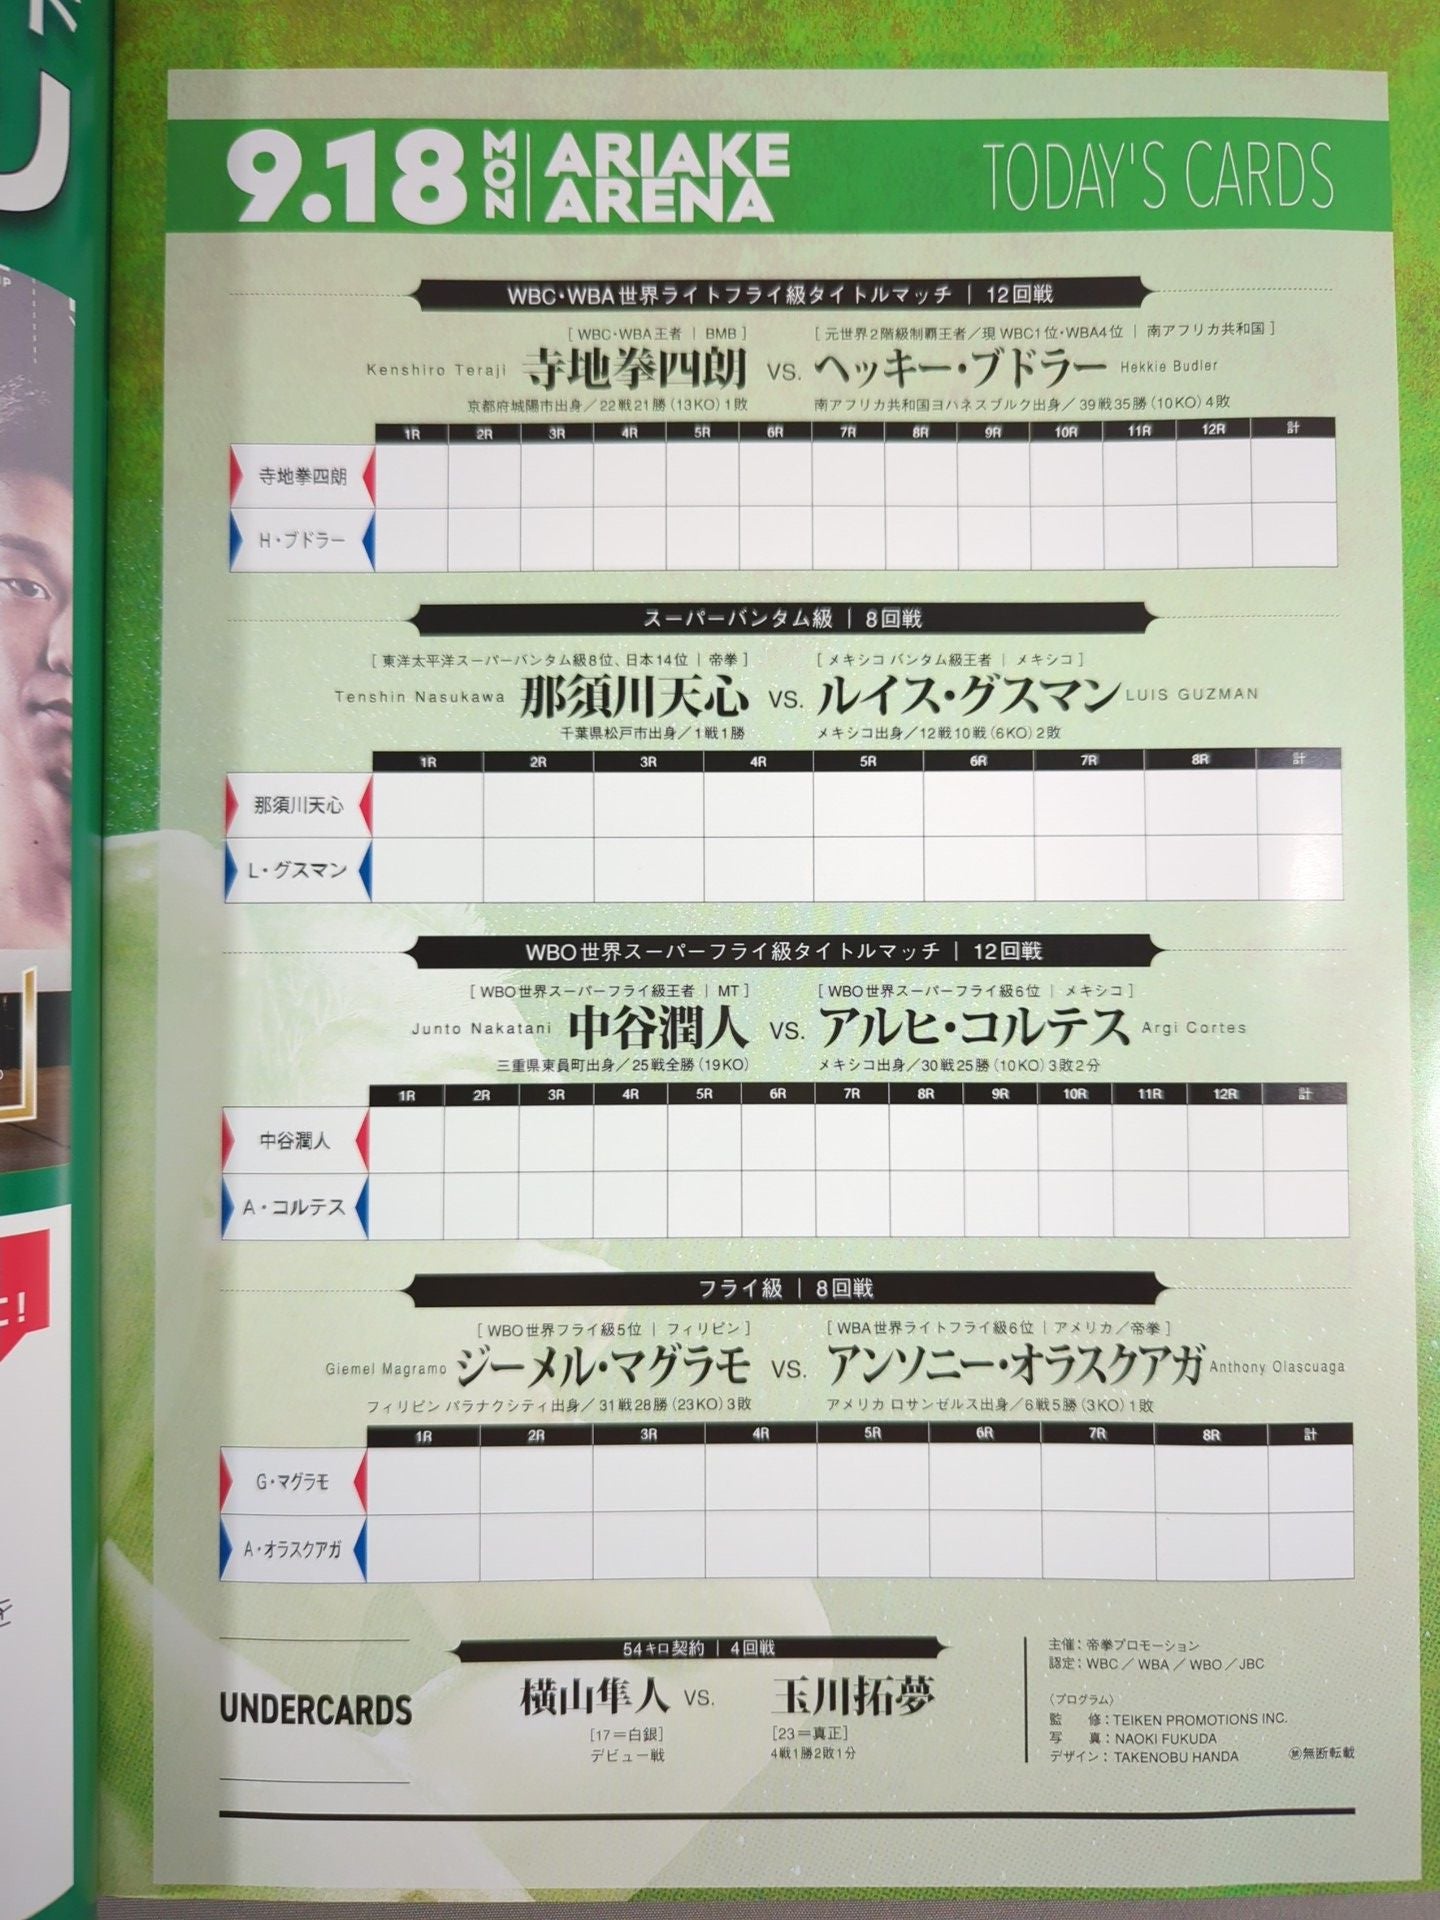 9.18 MON ARIAKE ARENA TODAY'S CARDS
WBC・WBA世界ライトフライ級タイトルマッチ | 12回戦
[ WBC・WBA王者 | BMB ] [ 元世界2階級制覇王者/現 WBC1位・WBA4位 | 南アフリカ共和国 ]
Kenshiro Teraji 寺地拳四朗 VS. ヘッキー・ブドラー Hekkie Budler
京都府城陽市出身/22戦21勝(13KO)1敗 南アフリカ共和国ヨハネスブルク出身/39戦35勝(10KO)4敗
1R 2R 3R 4R 5R 6R 7R 8R 9R 10R 11R 12R 計
寺地拳四朗
H・ブドラー
スーパーバンタム級 | 8回戦
[ 東洋太平洋スーパーバンタム級8位、日本14位 | 帝拳 ] [ メキシコ バンタム級王者 | メキシコ ]
Tenshin Nasukawa 那須川天心 VS. ルイス・グスマン LUIS GUZMAN
千葉県松戸市出身/1戦1勝 メキシコ出身/12戦10戦(6KO)2敗
1R 2R 3R 4R 5R 6R 7R 8R 計
那須川天心
L・グスマン
WBO世界スーパーフライ級タイトルマッチ | 12回戦
[ WBO世界スーパーフライ級王者 | MT ] [ WBO世界スーパーフライ級6位 | メキシコ ]
Junto Nakatani 中谷潤人 VS. アルヒ・コルテス Argi Cortes
三重県東員町出身/25戦全勝(19KO) メキシコ出身/30戦25勝(10KO)3敗2分
1R 2R 3R 4R 5R 6R 7R 8R 9R 10R 11R 12R 計
中谷潤人
A・コルテス
フライ級 | 8回戦
[ WBO世界フライ級5位 | フィリピン ] [ WBA世界ライトフライ級6位 | アメリカ/帝拳 ]
Giemel Magramo ジーメル・マグラモ VS. アンソニー・オラスクアガ Anthony Olascuaga
フィリピン パラナクシティ出身/31戦28勝(23KO)3敗 アメリカ ロサンゼルス出身/6戦5勝(3KO)1敗
1R 2R 3R 4R 5R 6R 7R 8R 計
G・マグラモ
A・オラスクアガ
UNDERCARDS
54キロ契約 | 4回戦
横山隼人 VS. 玉川拓夢
[17=白銀] [23=真正]
デビュー戦 4戦1勝2敗1分
主催:帝拳プロモーション
認定:WBC/WBA/WBO/JBC
〈プログラム〉
監 修:TEIKEN PROMOTIONS INC.
写 真:NAOKI FUKUDA
デザイン:TAKENOBU HANDA
㊙無断転載